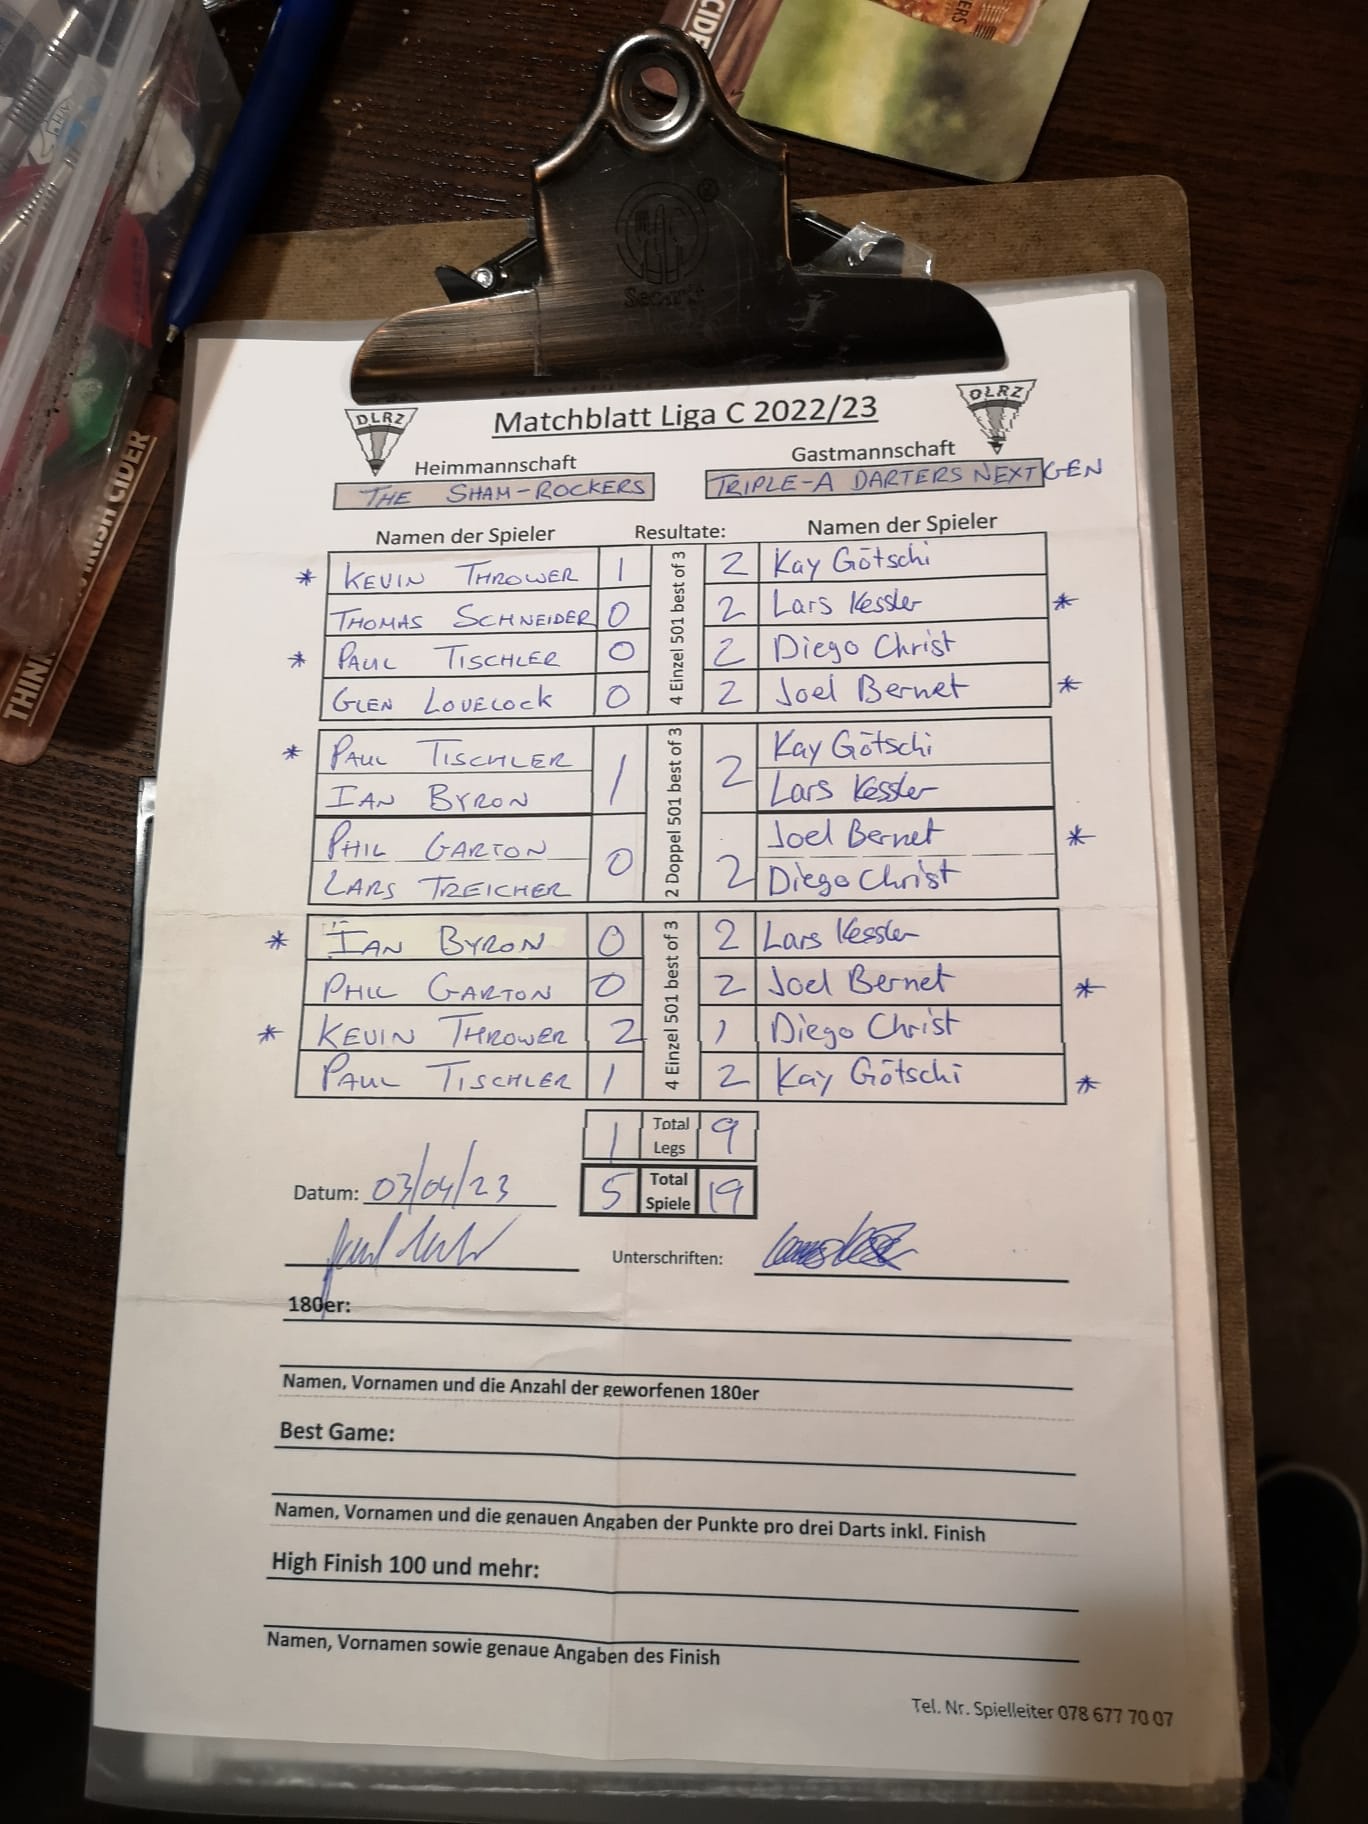 CIDE
ERS
Securit
DLRZ
Matchblatt Liga C 2022/23
DLRZ
Heimmannschaft
Gastmannschaft
THE SHAM-ROCKERS
TRIPLE-A DARTERS NEXTGEN
Namen der Spieler
Resultate:
Namen der Spieler
* KEVIN THROWER 1 2 Kay Götschi
THOMAS SCHNEIDER 0 2 Lars Kessler *
* PAUL TISCHLER 0 2 Diego Christ
GLEN LOVELOCK 0 2 Joel Bernet *
4 Einzel 501 best of 3
* PAUL TISCHLER 1 2 Kay Götschi
IAN BYRON Lars Kessler
PHIL GARTON 0 2 Joel Bernet *
LARS TREICHER Diego Christ
2 Doppel 501 best of 3
* IAN BYRON 0 2 Lars Kessler
PHIL GARTON 0 2 Joel Bernet *
* KEVIN THROWER 2 1 Diego Christ
PAUL TISCHLER 1 2 Kay Götschi *
4 Einzel 501 best of 3
1 Total Legs 9
5 Total Spiele 19
Datum: 03/04/23
Unterschriften:
180er:
Namen, Vornamen und die Anzahl der geworfenen 180er
Best Game:
Namen, Vornamen und die genauen Angaben der Punkte pro drei Darts inkl. Finish
High Finish 100 und mehr:
Namen, Vornamen sowie genaue Angaben des Finish
Tel. Nr. Spielleiter 078 677 70 07
IRISH CIDER